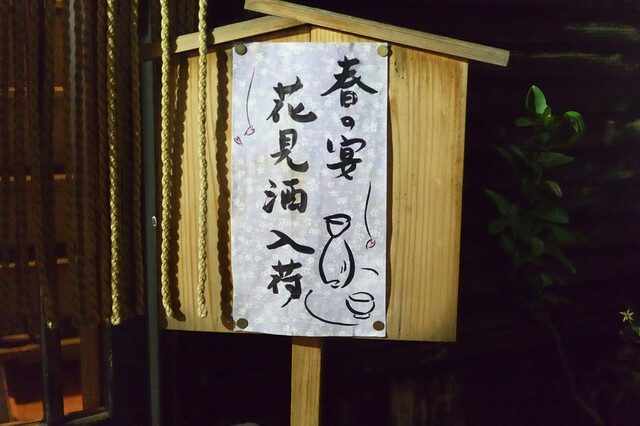 春の宴
花見酒入荷